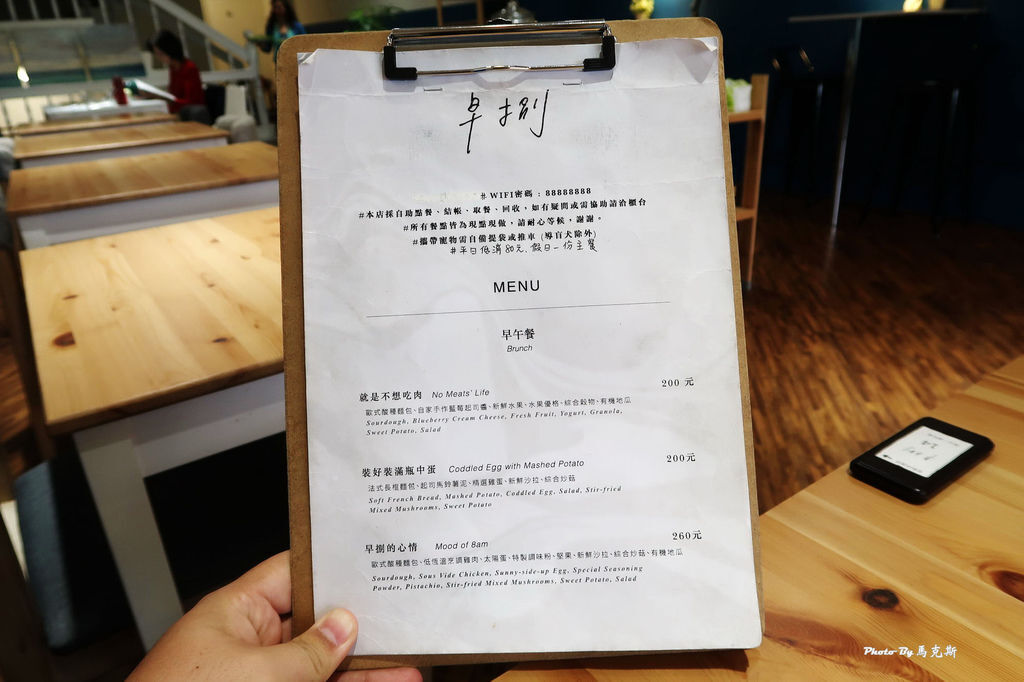 早捌
#WIFI密碼：88888888
#本店採自助點餐、結帳、取餐、回收，如有疑問或需協助請洽櫃台
#所有餐點皆為現點現做，請耐心等候，謝謝。
#攜帶寵物需自備提袋或推車 (導盲犬除外)
#平日低消80元、假日一份主餐
MENU
早午餐
Brunch
就是不想吃肉 No Meats' Life 200 元
歐式酸種麵包、自家手作藍莓起司醬、新鮮水果、水果優格、綜合穀物、有機地瓜
Sourdough, Blueberry Cream Cheese, Fresh Fruit, Yogurt, Granola,
Sweet Potato, Salad
裝好裝滿瓶中蛋 Coddled Egg with Mashed Potato 200元
法式長棍麵包、起司馬鈴薯泥、精選雞蛋、新鮮沙拉、綜合炒菇
Soft French Bread, Mashed Potato, Coddled Egg, Salad, Stir-fried
Mixed Mushrooms, Sweet Potato
早捌的心情 Mood of 8am 260元
歐式酸種麵包、低恆溫烹調雞肉、太陽蛋、特製調味粉、堅果、新鮮沙拉、綜合炒菇、有機地瓜
Sourdough, Sous Vide Chicken, Sunny-side-up Egg, Special Seasoning
Powder, Pistachio, Stir-fried Mixed Mushrooms, Sweet Potato, Salad
Photo By 馬克斯